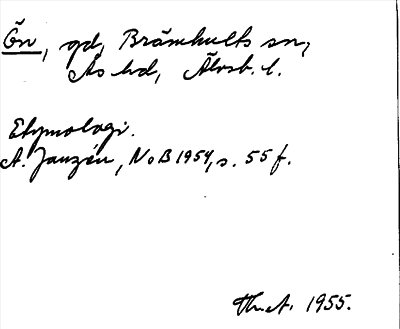 Ön, gd, Brämhults sn,
Ås hd, Älvsb. l.
Etymologi.
A. Janzén, NoB 1954, s. 55 f.
1955.